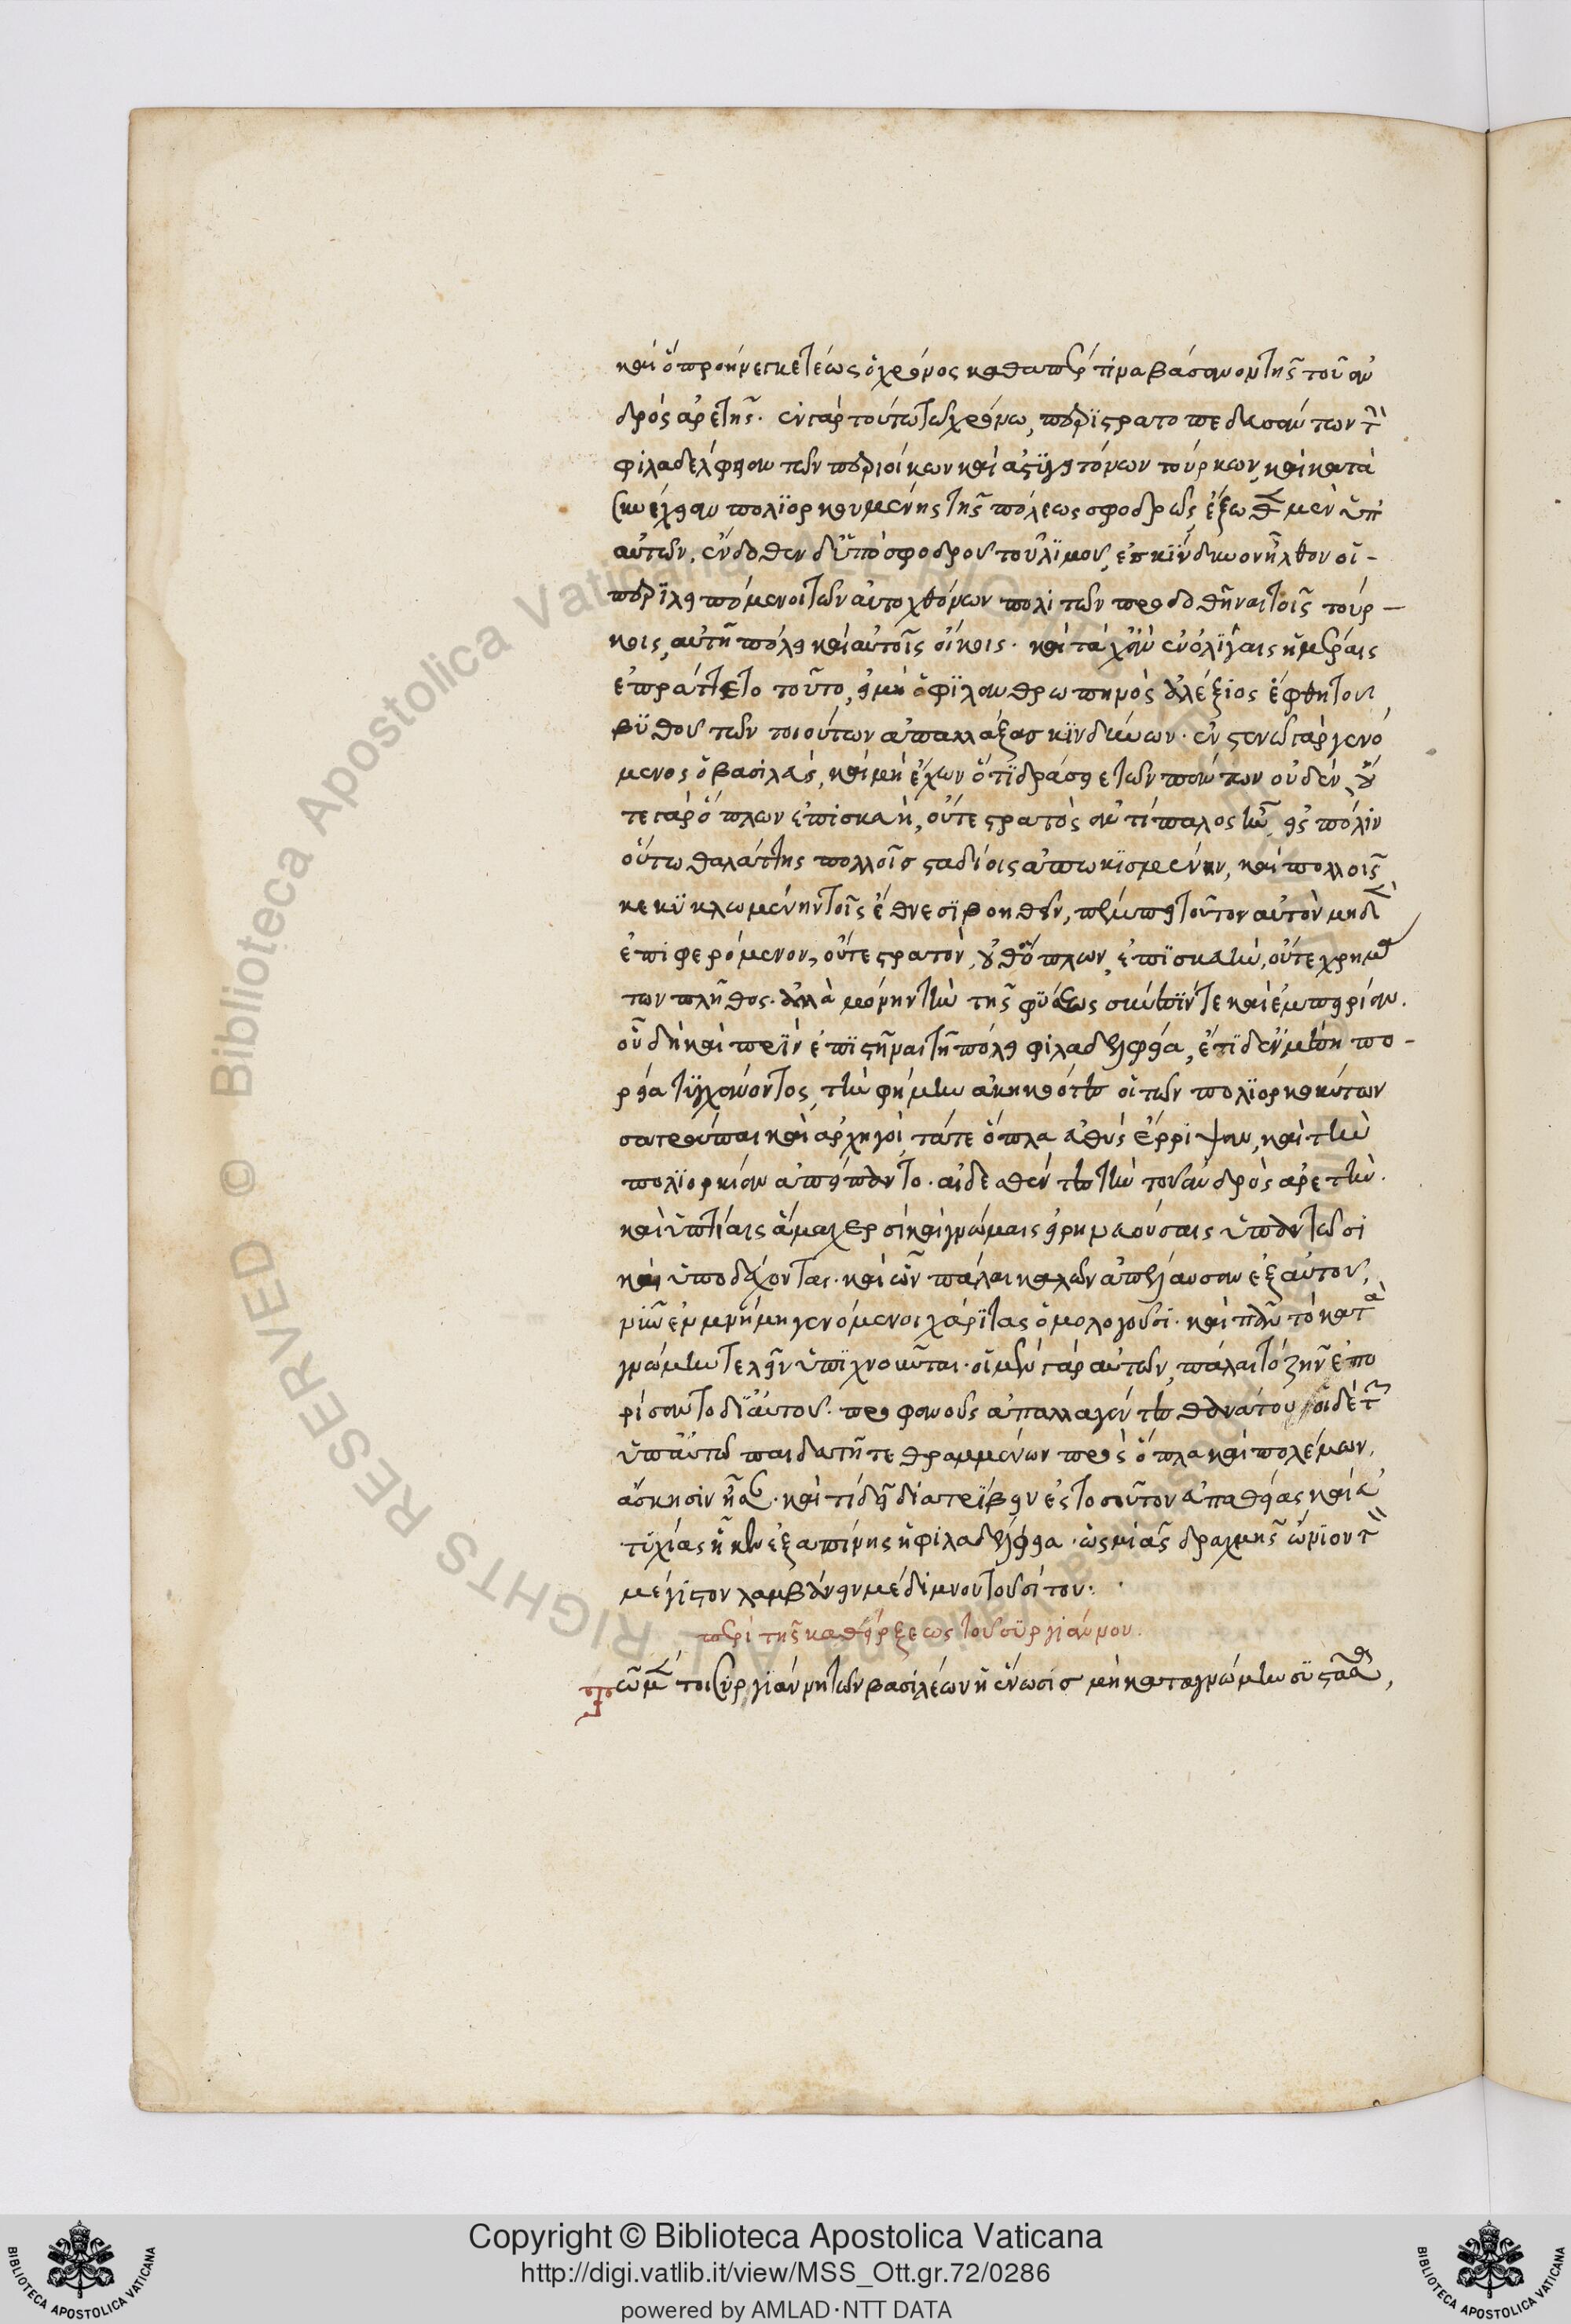 καὶ ὃ προήνεγκε τέως ὁ χρόνος καθαπερ τινα βάσανον τῆς τοῦ ἀν
δρὸς ἀρετῆς. ἐν γὰρ τούτω τῶ χρόνω, περιστρατοπεδευσάντων τὴν
φιλαδέλφειαν τῶν περιοίκων καὶ ἀστυγειτόνων τούρκων, καὶ κατὰ
συνέχειαν πολιορκουμένης τῆς πόλεως σφοδρῶς ἔξωθεν μὲν ὑπ'
αὐτῶν, ἔνδοθεν δ' ὑπὸ σφοδροῦ τοῦ λιμοῦ, ἐς κίνδυνον ἦλθον οἱ
περιλειπόμενοι τῶν αὐτοχθόνων πολιτῶν προδοθῆναι τοῖς τούρ-
κοις, αὐτῆ πόλει καὶ αὐτοῖς οἴκοις. καὶ τάχ' ἂν ἐν ὀλίγαις ἡμέραις
ἐπράττετο τοῦτο, εἰ μὴ ὁ φιλανθρωπηνὸς ἀλέξιος ἔφθη τοῦ
βυθοῦ τῶν τοιούτων ἀπαλλάξας κινδύνων. ἐν στενῶ γὰρ γενό
μενος ὁ βασιλεὺς, καὶ μὴ ἔχων ὅ τι δράσει ἐτῶν πάντων οὐδέν, οὔ
τε γὰρ ὅπλων ἐπισκευὴ, οὔτε στρατὸς ἀντίπαλος ἦν εἰς πόλιν
οὕτω θαλάττης πολλοῖς σταδίοις ἀπωκισμένην, καὶ πολλοῖς
κεκυκλωμένην τοῖς ἔθνεσι βοηθεῖν, πέμπει τοῦτον αὐτὸν μηδὲν
ἐπιφερόμενον, οὔτε στρατὸν, οὔθ' ὅπλων ἐπισκευὴν, οὔτε χρημά
των πλῆθος. ἀλλὰ μόνην τὴν τῆς φύσεως σύνεσίν τε καὶ ἐμπειρίαν.
οὗ δὴ καὶ πρὶν ἐπιστῆναι τῆ πόλει φιλαδελφεία, ἔτι δ' ἐν μέση πο-
ρεία τυγχάνοντος, τὴν φήμην ἀκηκοότες οἱ τῶν πολιορκούντων
σατράπαι καὶ ἀρχηγοὶ, τά τε ὅπλα εὐθὺς ἔρριψαν, καὶ τὴν
πολιορκίαν ἀπείπαντο. αἰδεσθέντες τὴν τοῦ ἀνδρὸς ἀρετὴν.
καὶ ὑπτίαις ἅμα χερσὶ καὶ γνώμαις εἰρηνευούσαις ὑπαντῶσι
καὶ ὑποδέχονται. καὶ ὧν πάλαι καλῶν ἀπέλαυσαν ἐξ αὐτοῦ,
νῦν ἐν μνήμη γενόμενοι χάριτας ὁμολογοῦσι. καὶ πᾶν τὸ κατὰ
γνώμην τελεῖν ὑπισχνοῦνται. οἱ μὲν γὰρ αὐτῶν, πάλαι τὸ ζῆν ἐπο
ρίσαντο δι' αὐτοῦ. προφανοῦς ἀπαλλαγέντες θανάτου, οἱ δὲ τῶν
ὑπ' αὐτῶ παιδευτῆ τεθραμμένων πρὸς ὅπλα καὶ πολέμων,
ἄσκησιν ἦσαν. καὶ τί δεῖ διατρίβειν ἐς τοσοῦτον ἀπαθείας καὶ εὐ
τυχίας ἧκεν ἐξαπίνης ἡ φιλαδέλφεια. ὡς μιᾶς δραχμῆς ὤνιον τὸν
μέγιστον λαμβάνειν μέδιμνον τοῦ σίτου.
περὶ τῆς καθείρξεως τοῦ συργιάννου.
τῶ μέντοι συργιάννη τῶν βασιλέων ἡ ἕνωσις μὴ κατὰ γνώμην συστᾶσα,
Copyright © Biblioteca Apostolica Vaticana
http://digi.vatlib.it/view/MSS_Ott.gr.72/0286
powered by AMLAD·NTT DATA
BIBLIOTECA APOSTOLICA VATICANA
BIBLIOTECA APOSTOLICA VATICANA